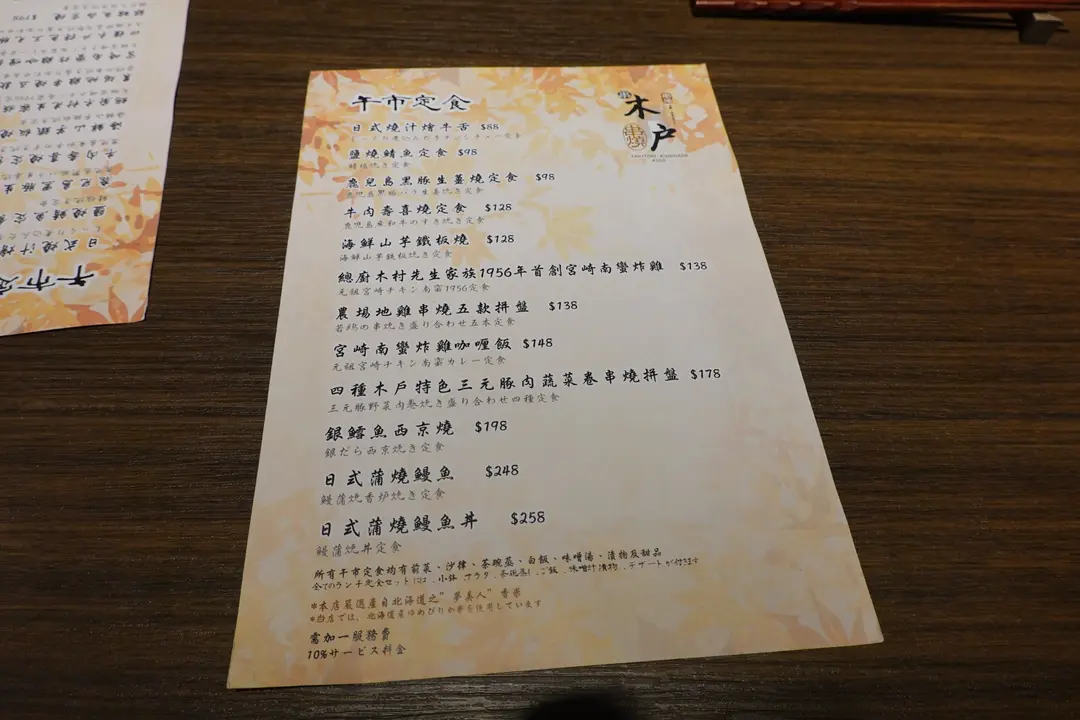 午市定食
木戶
串燒
YAKITORI KUSHIYAKI
KIDO
日式燒汁燴牛舌 $88
鹽燒鯖魚定食 $98
鯖塩焼き定食
鹿兒島黑豚生薑燒定食 $98
鹿児島黒豚バラ生姜焼き定食
牛肉壽喜燒定食 $128
鹿児島産和牛のすき焼き定食
海鮮山芋鐵板燒 $128
海鮮山芋鉄板焼き定食
總廚木村先生家族1956年首創宮崎南蠻炸雞 $138
元祖宮崎チキン南蛮1956定食
農場地雞串燒五款拼盤 $138
若鶏の串焼き盛り合わせ五本定食
宮崎南蠻炸雞咖喱飯 $148
元祖宮崎チキン南蛮カレー定食
四種木戶特色三元豚肉蔬菜卷串燒拼盤 $178
三元豚野菜肉巻焼き盛り合わせ四種定食
銀鱈魚西京燒 $198
銀だら西京焼き定食
日式蒲燒鰻魚 $248
鰻蒲焼香炉焼き定食
日式蒲燒鰻魚丼 $258
鰻蒲焼丼定食
所有午市定食均有前菜、沙律、茶碗蒸、白飯、味噌湯、漬物及甜品
全てのランチ定食セットには、小鉢、サラダ、茶碗蒸し、ご飯、味噌汁漬物、デザートが付きます
*本店嚴選產自北海道之"夢美人"香米
*当店では、北海道産ゆめぴりか米を使用しています
需加一服務費
10%サービス料金